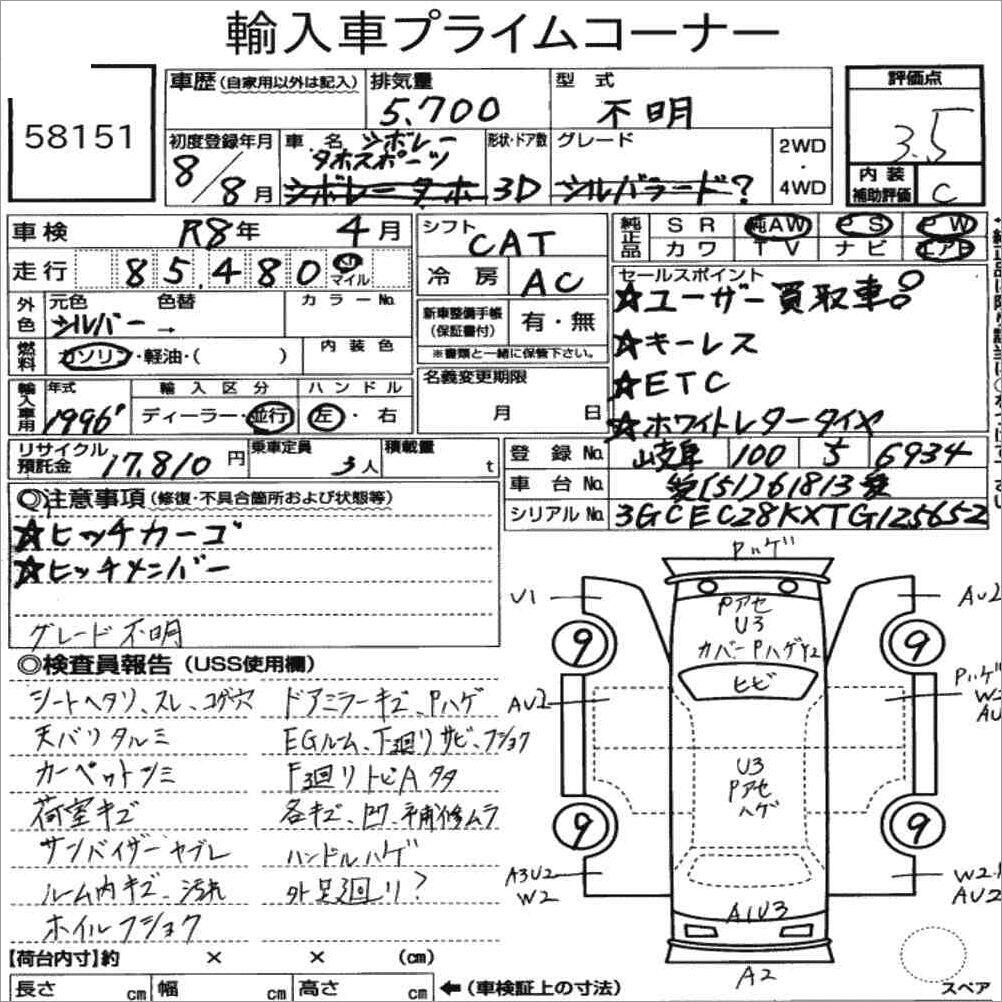 輸入車プライムコーナー
58151
車歴(自家用以外は記入) 排気量 5,700 型式 不明 評価点 3.5
初度登録年月 8/8月 車名 シボレー タホスポーツ シボレータホ 形状・ドア数 3D グレード シルバラード? 2WD・4WD
内装補助評価 C
車検 R8年 4月 シフト CAT 純正品 SR 純AW PS PW
カワ TV ナビ エアB
走行 85,480 マイル 冷房 AC
外色 元色 シルバー 色替 → カラーNo.
新車整備手帳(保証書付) 有・無
※書類と一緒に保管下さい。
燃料 ガソリン・軽油・( ) 内装色
輸入車用 年式 1996 輸入区分 ディーラー・並行 ハンドル 左・右
名義変更期限 月 日
セールスポイント
☆ユーザー買取車!!
☆キーレス
☆ETC
☆ホワイトレタータイヤ
リサイクル預託金 17,810円 乗車定員 3人 積載量 t
登録No. 岐阜 100 5 6934
車台No. [51]61813
シリアルNo. 3GCEC28KXTG125652
◎注意事項(修復・不具合箇所および状態等)
☆ヒッチカーゴ
☆ヒッチメンバー
グレード不明
◎検査員報告(USS使用欄)
シートヘタリ、スレ、コゲ穴 ドアミラーキズ、Pハゲ
天バリタルミ EGルーム、下廻リサビ、フショク
カーペットシミ F廻リトビAタタ
荷室キズ 各キズ、凹、補修ムラ
サンバイザーヤブレ ハンドルハゲ
ルーム内キズ、汚れ 外品廻リ?
ホイルフショク
Pハゲ
U1
PアセU3
カバーPハゲY2
AU2
9
9
ヒビ
AU2
Pハゲ
U3
Pアセ
ハゲ
9
9
A3U2
W2
W2
AU2
A1U3
A2
【荷台内寸】約 × × (cm)
長さ cm 幅 cm 高さ cm ←(車検証上の寸法)
スペア